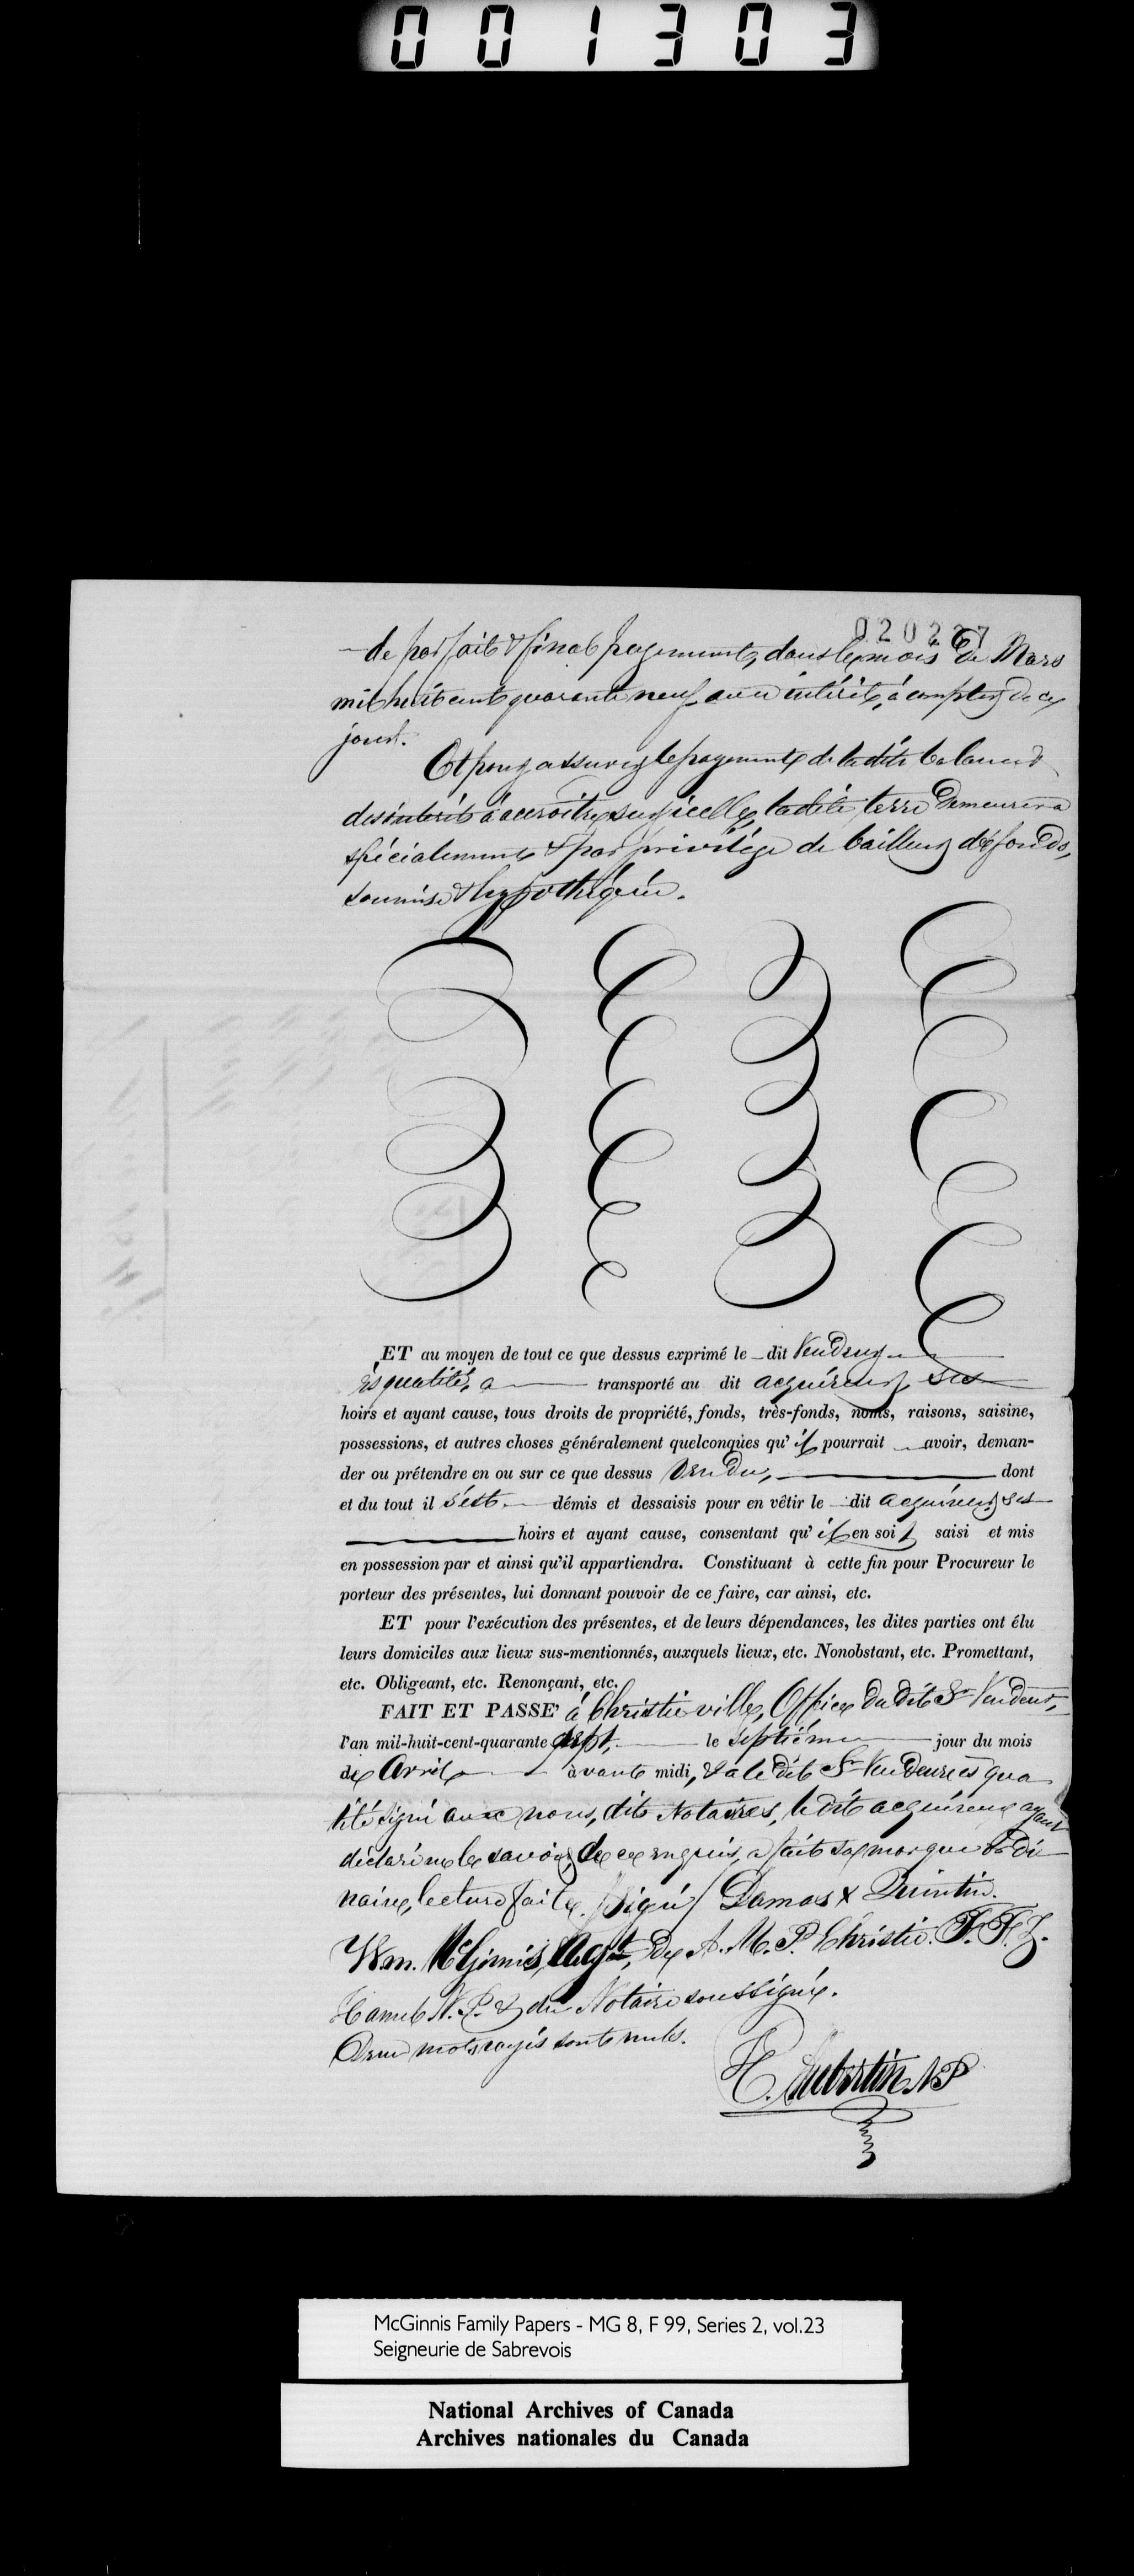 001303
020227
de parfait & final payement, dans le mois de Mars
mil huit cent quarante neuf avec intérêt, à compter de ce
jour.
Et pour assurer le payement de la dite balance &
des intérêts à accroître sur icelle, la dite terre demeurera
spécialement & par privilége de bailleur de fonds,
soumise & hypothéquée.
ET au moyen de tout ce que dessus exprimé le dit Vendeur
ès qualités, a transporté au dit acquéreur, ses
hoirs et ayant cause, tous droits de propriété, fonds, très-fonds, noms, raisons, saisine,
possessions, et autres choses généralement quelconques qu'il pourrait avoir, deman-
der ou prétendre en ou sur ce que dessus vendu, dont
et du tout il s'est démis et dessaisis pour en vêtir le dit acquéreur, ses
hoirs et ayant cause, consentant qu'il en soit saisi et mis
en possession par et ainsi qu'il appartiendra. Constituant à cette fin pour Procureur le
porteur des présentes, lui donnant pouvoir de ce faire, car ainsi, etc.
ET pour l'exécution des présentes, et de leurs dépendances, les dites parties ont élu
leurs domiciles aux lieux sus-mentionnés, auxquels lieux, etc. Nonobstant, etc. Promettant,
etc. Obligeant, etc. Renonçant, etc.
FAIT ET PASSE' à Christieville, Office du dit Sr Vendeur,
l'an mil-huit-cent-quarante sept, le septième jour du mois
de Avril avant midi, & a le dit Sr Vendeur ès qua
lité signé avec nous, dits Notaires, le dit acquéreur ayant
déclaré ne le savoir, de ce enquis, a fait sa marque ordi
naire, lecture faite. /Signé/ Damas X Quintin.
Wm. McGinnis, Agt, de A. M. P. Christie. T. F. Z.
Hamel N. P. & du Notaire soussigné.
Deux mots rayés sont nuls.
H. Aubertin NP
McGinnis Family Papers - MG 8, F 99, Series 2, vol.23
Seigneurie de Sabrevois
National Archives of Canada
Archives nationales du Canada